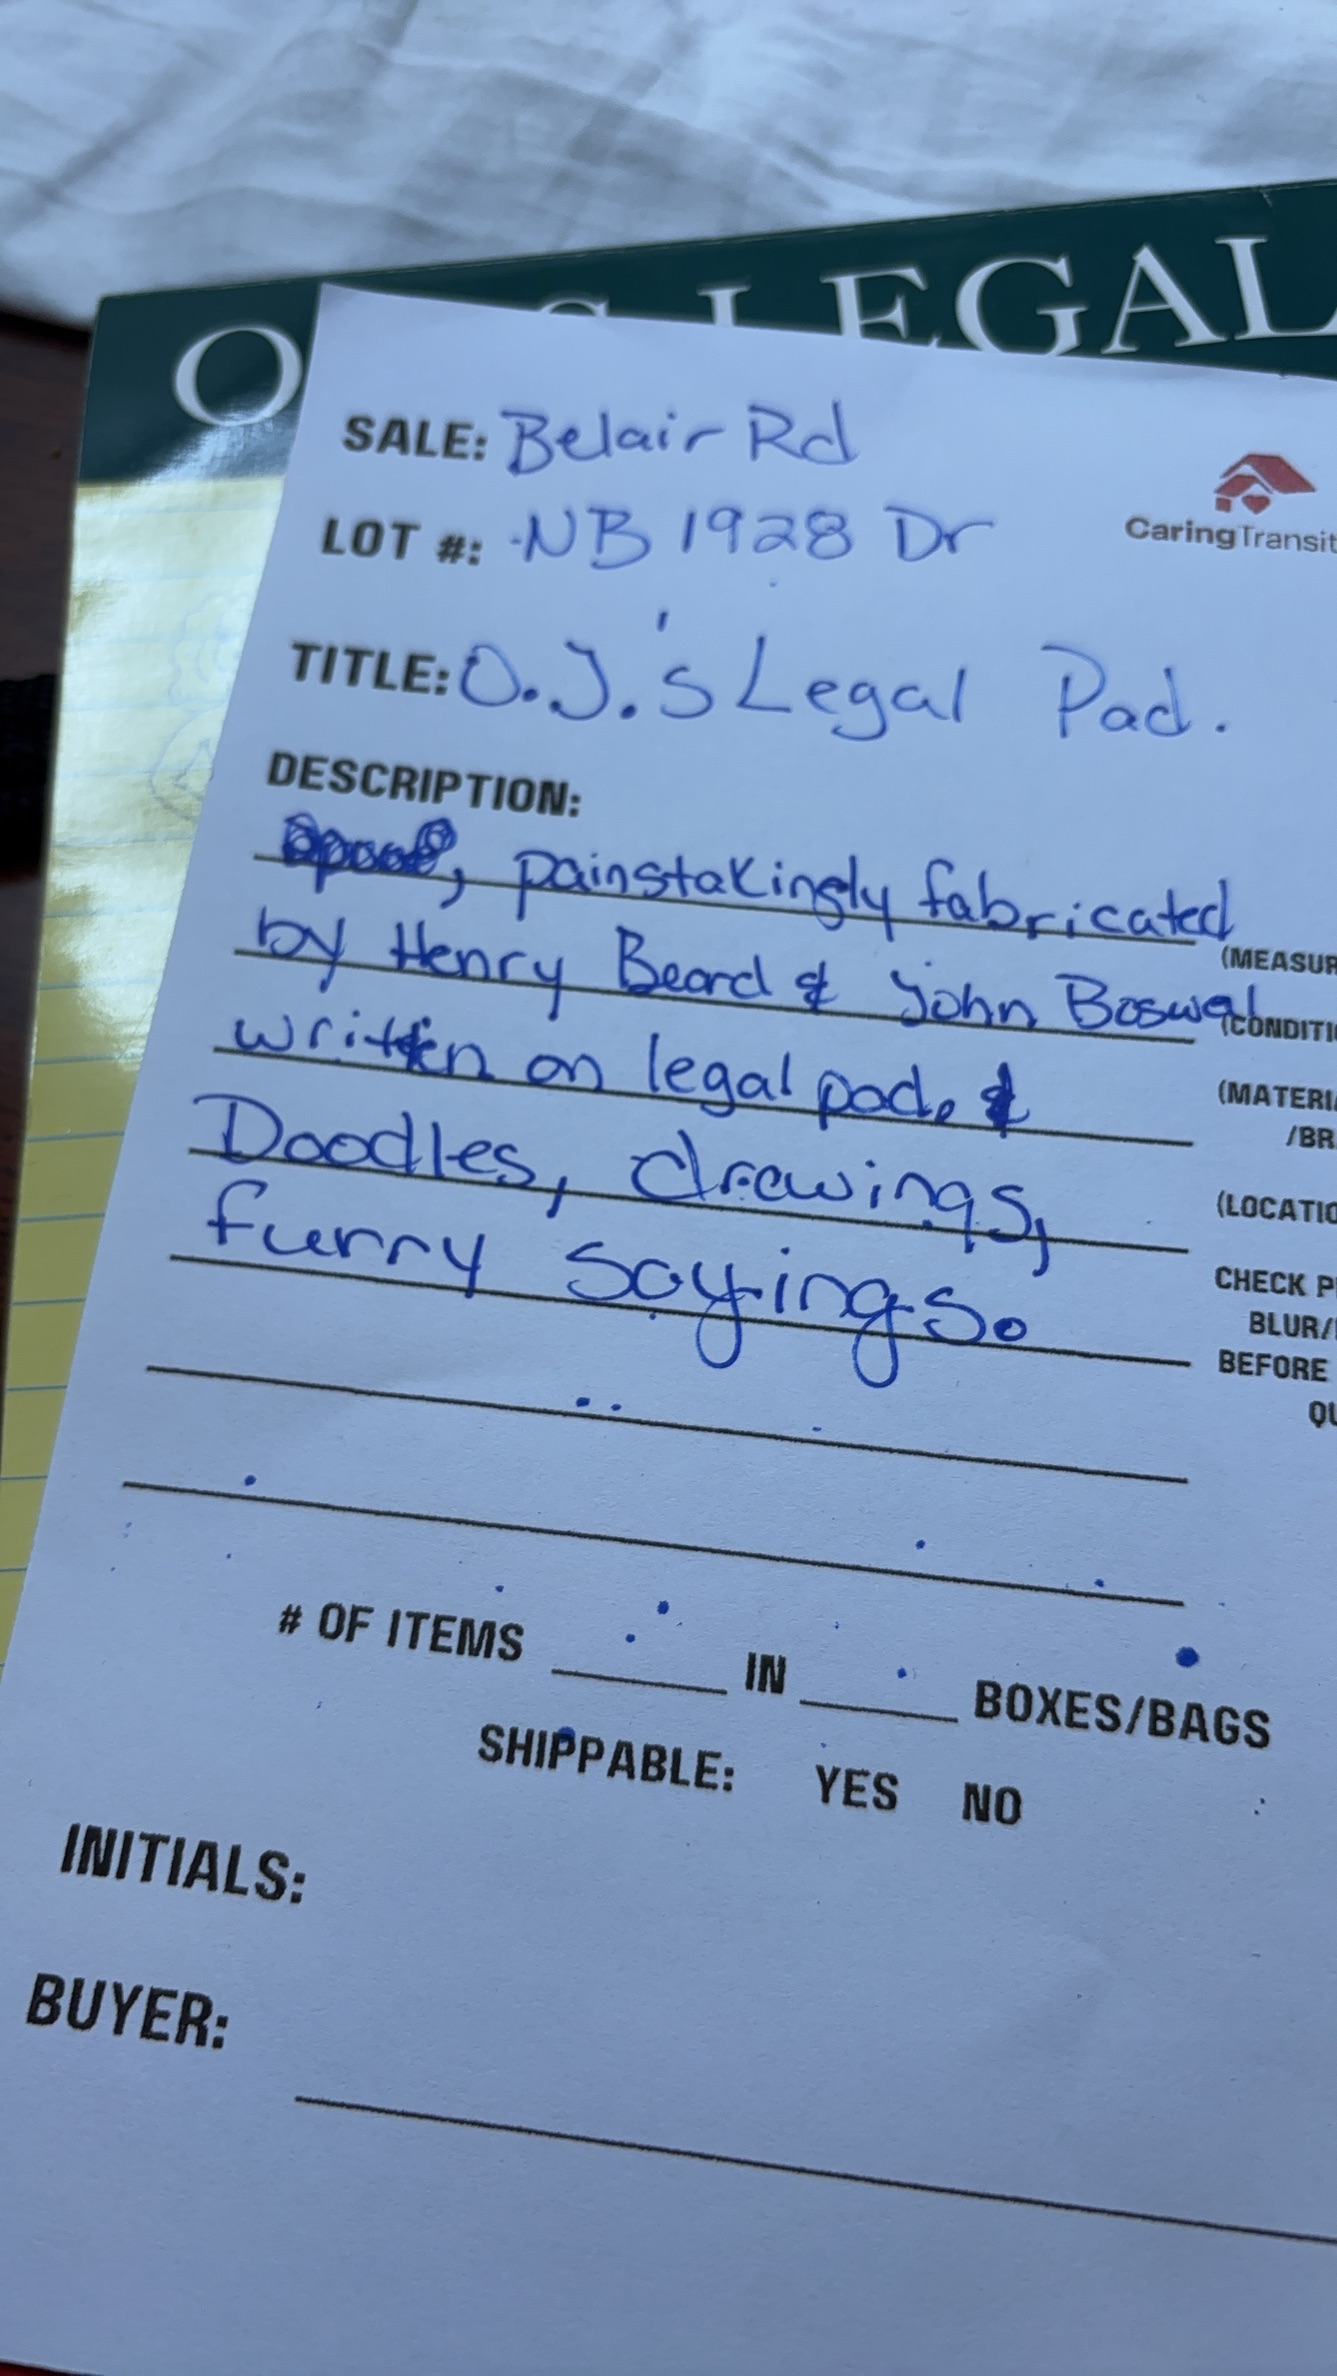 O S LEGAL
SALE: Belair Rd
CaringTransit
LOT #: NB 1928 Dr
TITLE: O.J.'s Legal Pad.
DESCRIPTION:
, painstakingly fabricated
(MEASUR
by Henry Beard & John Boswel
(CONDITI
written on legal pad. &
(MATERIA
/BR
Doodles, drawings,
(LOCATIO
funny sayings.
CHECK P
BLUR/
BEFORE
QU
# OF ITEMS ____ IN ____ BOXES/BAGS
SHIPPABLE: YES NO
INITIALS:
BUYER: